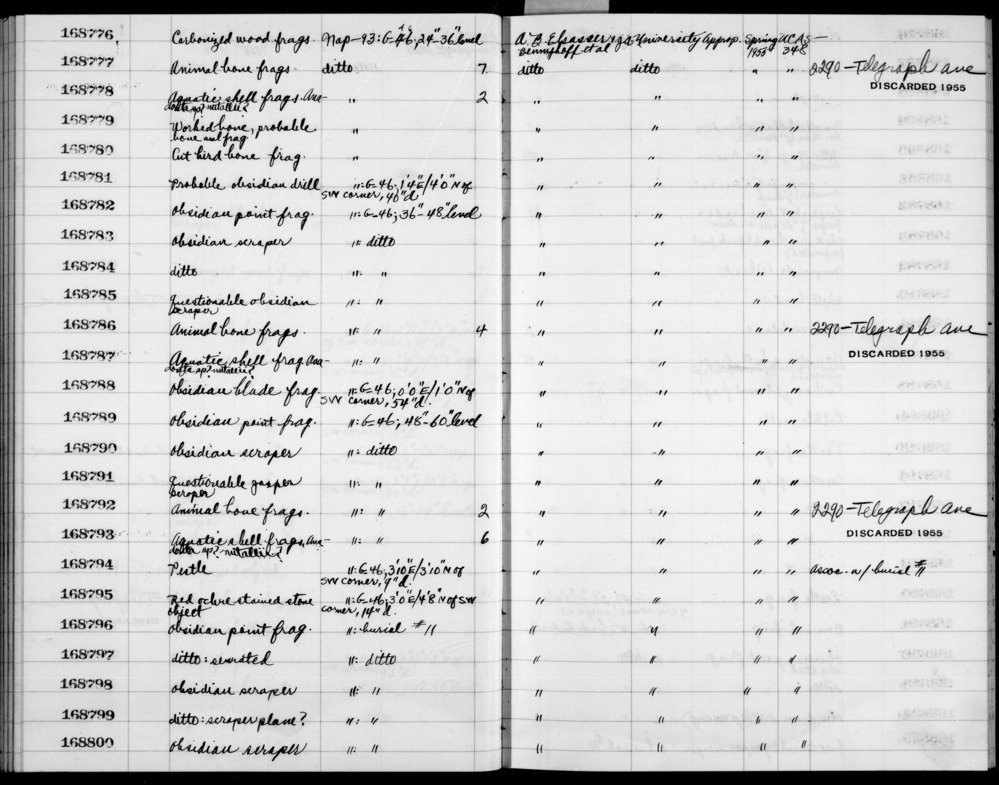 168776 Carbonized wood frags. Nap-93: G-46; 24"-36" level A. B. Elsasser & J. A. University Approp. Spring UCAS-
Bennyhoff et al 1955 348
168777 Animal bone frags. ditto 7 ditto ditto " " 2290-Telegraph ave
DISCARDED 1955
168778 Aquatic shell frags. Ano- " 2 " " " "
donta sp? nutalliz?
168779 Worked bone, probable " " " " "
bone awl frag.
168780 Cut bird bone frag. " " " " "
168781 Probable obsidian drill ": G-46; 1'4"E/4'0"N of " " " "
SW corner, 40"d.
168782 Obsidian point frag. ": G-46; 36"-48" level " " " "
168783 Obsidian scraper ": ditto " " " "
168784 ditto ": " " " " "
168785 Questionable obsidian ": " " " " "
scraper
168786 Animal bone frags. ": " 4 " " " " 2290-Telegraph ave
DISCARDED 1955
168787 Aquatic shell frag. Ano- ": " " " " "
donta sp? nutalliz?
168788 Obsidian blade frag. ": G-46; 0'0"E/1'0"N of " " " "
SW corner, 54"d.
168789 Obsidian point frag. ": G-46; 48"-60" level " " " "
168790 Obsidian scraper ": ditto " " " "
168791 Questionable jasper ": " " " " "
scraper
168792 Animal bone frags. ": " 2 " " " " 2290-Telegraph ave
DISCARDED 1955
168793 Aquatic shell frags. Ano- ": " 6 " " " "
donta sp? nutalliz?
168794 Pestle ": G-46; 3'10"E/3'10"N of " " " " assoc. w/ burial #11
SW corner, 9"d.
168795 Red ochre stained stone ": G-46; 3'0"E/4'8"N of SW " " " "
object corner, 14"d.
168796 Obsidian point frag. ": burial #11 " " " "
168797 ditto: serrated ": ditto " " " "
168798 Obsidian scraper ": " " " " "
168799 ditto: scraper plane? ": " " " " "
168800 Obsidian scraper ": " " " " "